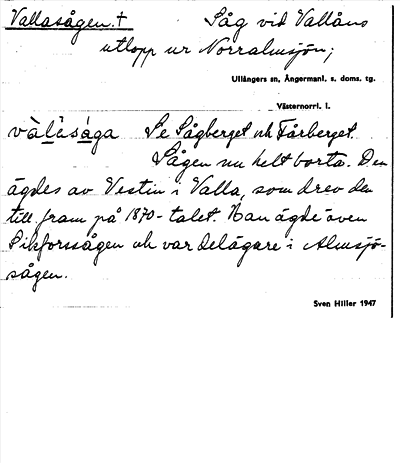 Vallasågen. † Såg vid Vallåns
utlopp ur Norralmsjön;
Ullångers sn, Ångermanl. s. doms. tg.
Västernorrl. l.
vàl̀asá̀ga Se Sågberget och Fårberget.
Sågen nu helt borta. Den
ägdes av Vestin i Valla, som drev den
till fram på 1870-talet. Han ägde även
sågen och var delägare i Almsjö-
sågen.
Sven Hiller 1947